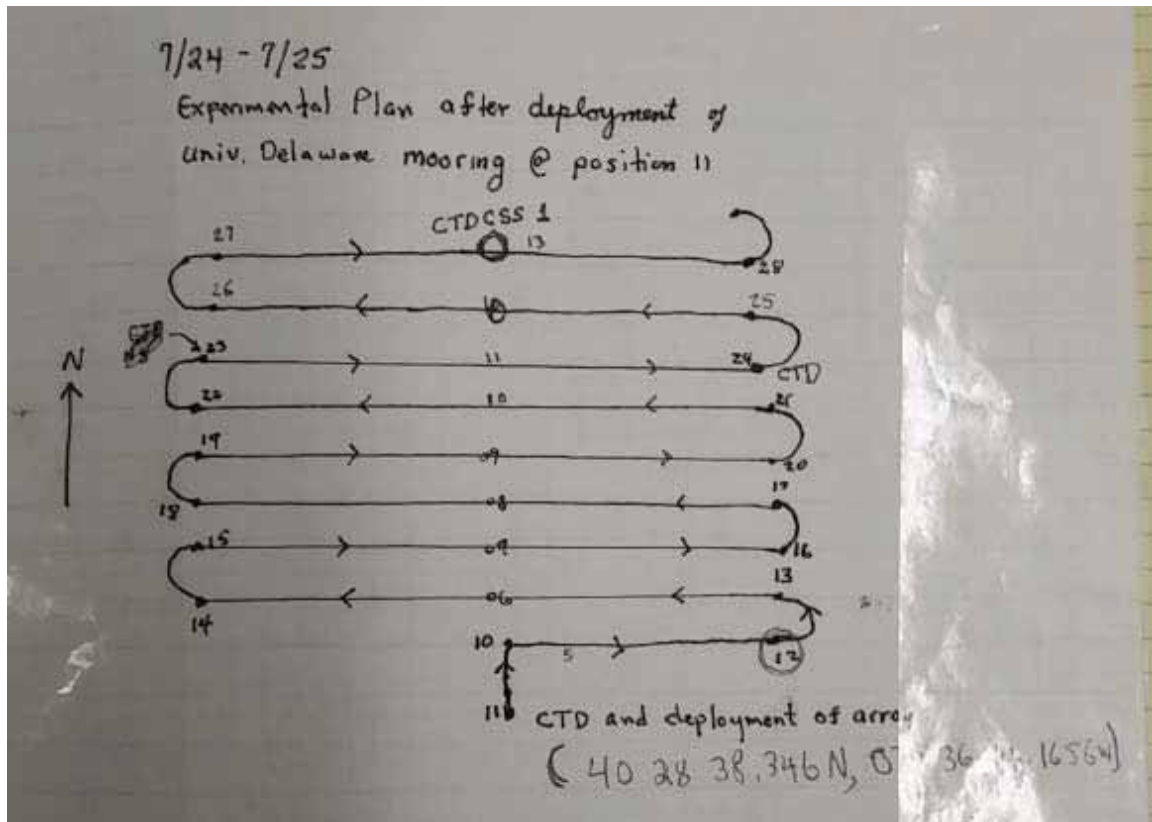 7/24 - 7/25
Experimental Plan after deployment of
Univ. Delaware mooring @ position 11
CTD CSS 1
27
13
28
26
25
N
23
11
24
CTD
22
10
21
19
09
20
18
08
17
15
07
16
13
14
06
10
5
12
11
CTD and deployment of array
(40 28 38.346N, 36 1656W)